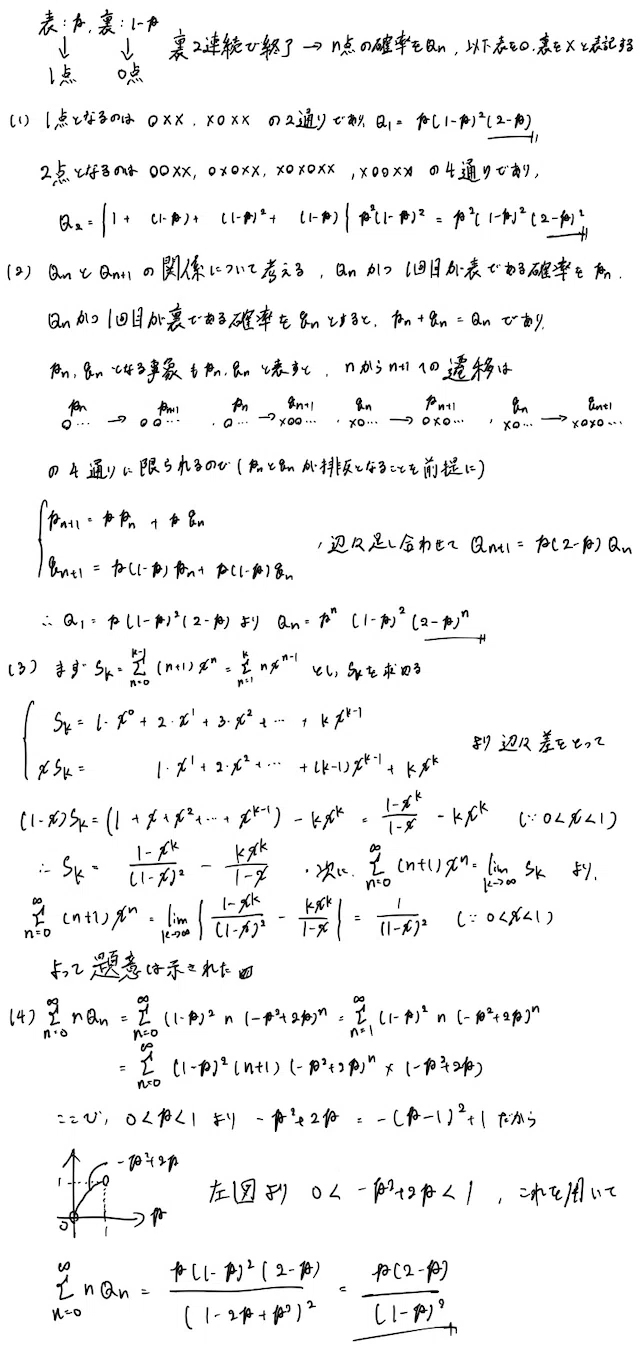 表:p, 裏:1-p
↓ ↓ 裏2連続で終了 → n点の確率をQn, 以下表を○,裏を×と表記する
1点 0点
(1) 1点となるのは ○××, ×○×× の2通りであり, Q₁ = p(1-p)²(2-p)
2点となるのは ○○××, ○×○××, ×○×○××, ×○○×× の4通りであり,
Q₂ = {1 + (1-p) + (1-p)² + (1-p)} p²(1-p)² = p²(1-p)²(2-p)²
(2) QnとQn+1の関係について考える, Qnかつ1回目が表である確率をpn.
Qnかつ1回目が裏である確率をqnとすると, pn + qn = Qn であり,
pn, qnとなる事象もpn, qnと表すと, nからn+1への遷移は
pn pn+1 pn qn+1 qn pn+1 qn qn+1
○… → ○○…, ○… → ×○○…, ×○… → ○×○…, ×○… → ×○×○…
の4通りに限られるので (pnとqnが排反となることを前提に)
{ pn+1 = p pn + p qn
qn+1 = p(1-p)pn + p(1-p)qn , 辺々足し合わせて Qn+1 = p(2-p)Qn
∴ Q₁ = p(1-p)²(2-p) より Qn = pⁿ (1-p)² (2-p)ⁿ
(3) まず Sk = Σ_{n=0}^{k-1} (n+1)xⁿ = Σ_{n=1}^{k} n xⁿ⁻¹ とし, Skを求める
{ Sk = 1·x⁰ + 2·x¹ + 3·x² + … + k x^{k-1}
xSk = 1·x¹ + 2·x² + … + (k-1)x^{k-1} + k x^k より 辺々差をとって
(1-x)Sk = (1 + x + x² + … + x^{k-1}) - k x^k = (1-x^k)/(1-x) - k x^k (∵ 0<x<1)
∴ Sk = (1-x^k)/(1-x)² - k x^k/(1-x) . 次に, Σ_{n=0}^{∞} (n+1)xⁿ = lim_{k→∞} Sk より,
Σ_{n=0}^{∞} (n+1)xⁿ = lim_{k→∞} { (1-x^k)/(1-x)² - k x^k/(1-x) } = 1/(1-x)² (∵ 0<x<1)
よって題意は示された
(4) Σ_{n=0}^{∞} nQn = Σ_{n=0}^{∞} (1-p)² n (-p²+2p)ⁿ = Σ_{n=1}^{∞} (1-p)² n (-p²+2p)ⁿ
= Σ_{n=0}^{∞} (1-p)² (n+1) (-p²+2p)ⁿ × (-p²+2p)
ここで, 0<p<1 より -p²+2p = -(p-1)²+1 だから
-p²+2p
1
0 1 p
左図より 0 < -p²+2p < 1 , これを用いて
Σ_{n=0}^{∞} nQn = p(1-p)²(2-p)/(1-2p+p²)² = p(2-p)/(1-p)²